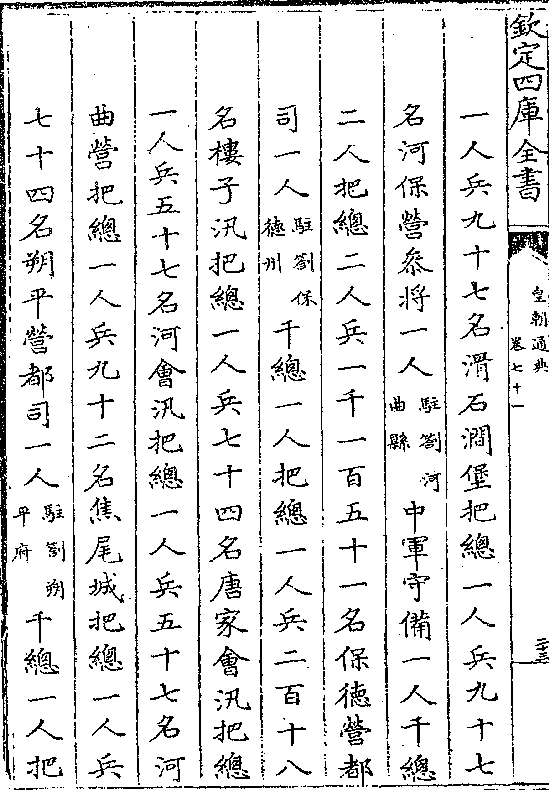 欽定四庫全書
皇朝通典
卷七十一
二十三
一人兵九十七名滑石澗堡把總一人兵九十七
名河保營叅將一人駐劄河曲縣中軍守備一人千總
二人把總二人兵一千一百五十一名保德營都
司一人駐劄保德州千總一人把總一人兵二百十八
名樓子汛把總一人兵七十四名唐家會汛把總
一人兵五十七名河會汛把總一人兵五十七名河
曲營把總一人兵九十二名焦尾城把總一人兵
七十四名朔平營都司一人駐劄朔平府千總一人把